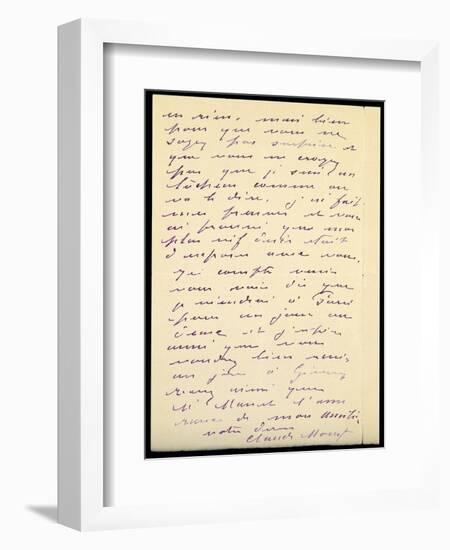 en rien, mais bien
pour que vous ne
soyez pas surprise et
que vous ne croyez
pas que je suis un
lâcheur comme on
va le dire. j'ai fait
mes preuves et vous
ai prouvé que mon
plus vif désir était
d'exposer avec vous.
vous dis que
je viendrai à Paris
pour un jour ou
deux et j'espère
aussi que vous
voudrez bien venir
un jour à Giverny
ainsi que
Mr Manet l'assu
rance de mon amitié
votre
Claude Monet